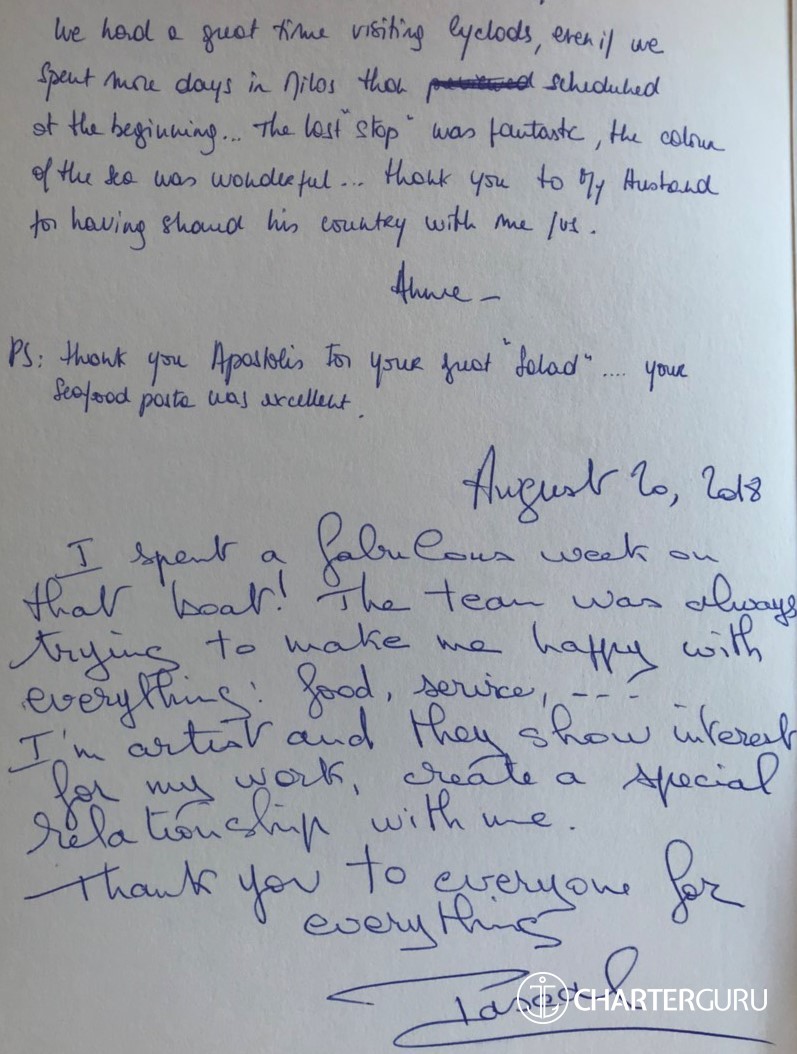 We had a great time visiting Cyclads, even if we
spent more days in Milos than scheduled
at the beginning... The last "stop" was fantastic, the colour
of the sea was wonderful... thank you to My Husband
for having shared his country with me / us.
Anne -
PS: thank you Apostolis for your great "Salad".... your
Seafood pasta was excellent.
August 20, 2018
I spent a fabulous week on
that boat! The team was always
trying to make me happy with
everything: food, service, ---
I'm artist and they show interest
for my work, create a special
relationship with me.
Thank you to everyone for
everything
Pascal
CHARTERGURU